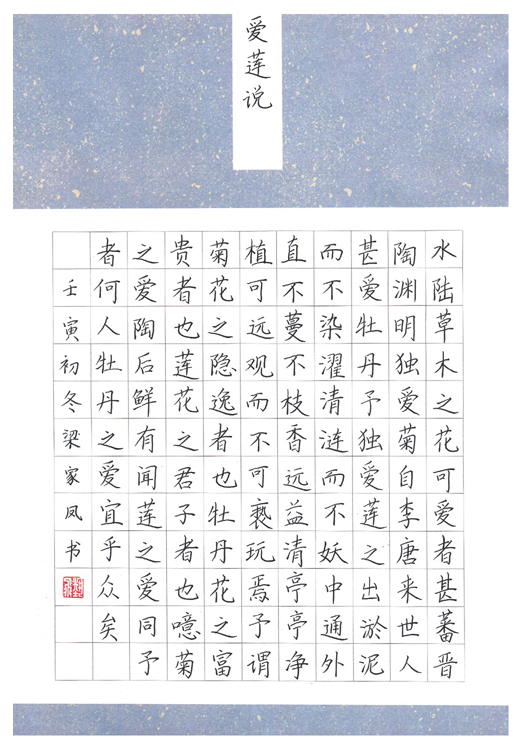 爱莲说
水陆草木之花可爱者甚蕃晋
陶渊明独爱菊自李唐来世人
甚爱牡丹予独爱莲之出淤泥
而不染濯清涟而不妖中通外
直不蔓不枝香远益清亭亭净
植可远观而不可亵玩焉予谓
菊花之隐逸者也牡丹花之富
贵者也莲花之君子者也噫菊
之爱陶后鲜有闻莲之爱同予
者何人牡丹之爱宜乎众矣
壬寅初冬梁家凤书